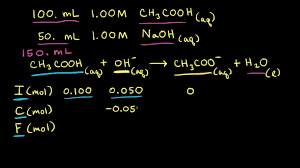 100. mL 1.00M CH₃COOH(aq)
50. mL 1.00M NaOH(aq)
150. mL
CH₃COOH(aq) + OH⁻(aq) → CH₃COO⁻(aq) + H₂O(ℓ)
I (mol) 0.100 0.050 0
C (mol) -0.05
F (mol)